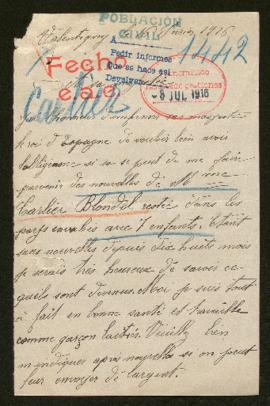 POBLACION
CIVIL
Valentigney 1916
1442
Pedir informes
que se hace así
Devolver
Fecho
8 JUL 1916
Cartier
d'Espagne de vouloir bien avoir
l'obligeance si ca se peut de me faire
parvenir des nouvelles de Mme
Cartier Blondel restée dans les
pays envahis avec 7 enfants. Etant
sans nouvelles depuis dix huits mois
je serais très heureux de savoir ce
qu'ils sont devenus. Moi je suis tout
à fait en bonne santé et travaille
comme garçon laitier. Veuillez bien
m'indiquer après nouvelles si on peut
leur envoyer de l'argent.